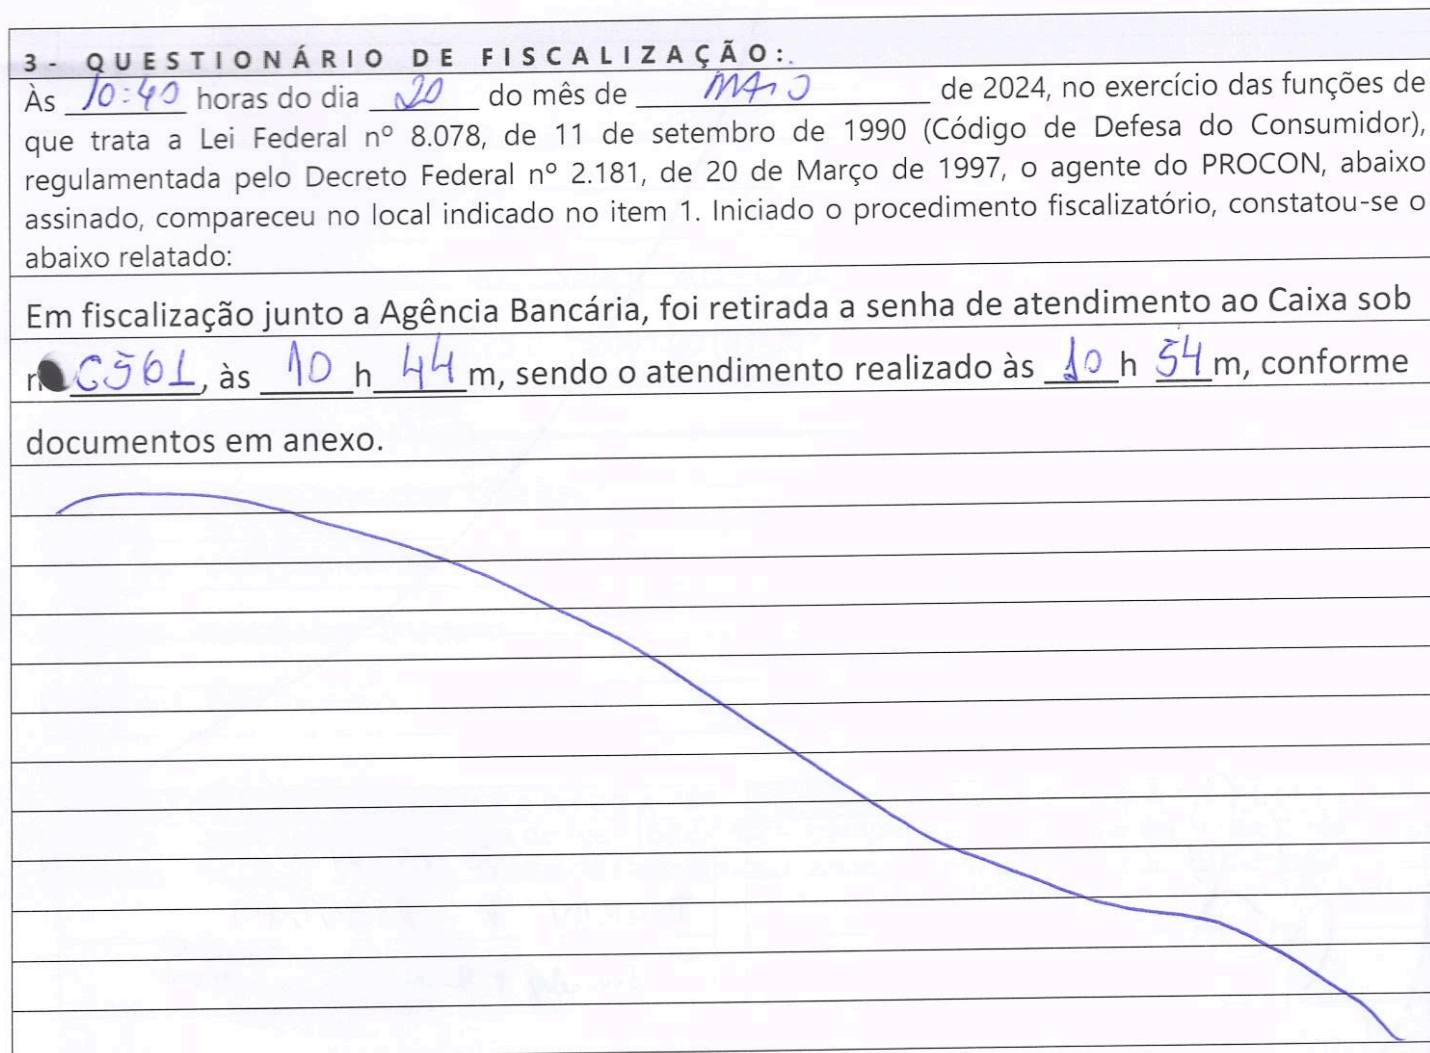 3 - QUESTIONÁRIO DE FISCALIZAÇÃO:
Às 10:40 horas do dia 20 do mês de MAIO de 2024, no exercício das funções de
que trata a Lei Federal nº 8.078, de 11 de setembro de 1990 (Código de Defesa do Consumidor),
regulamentada pelo Decreto Federal nº 2.181, de 20 de Março de 1997, o agente do PROCON, abaixo
assinado, compareceu no local indicado no item 1. Iniciado o procedimento fiscalizatório, constatou-se o
abaixo relatado:
Em fiscalização junto a Agência Bancária, foi retirada a senha de atendimento ao Caixa sob
n C561, às 10 h 44 m, sendo o atendimento realizado às 10 h 54 m, conforme
documentos em anexo.